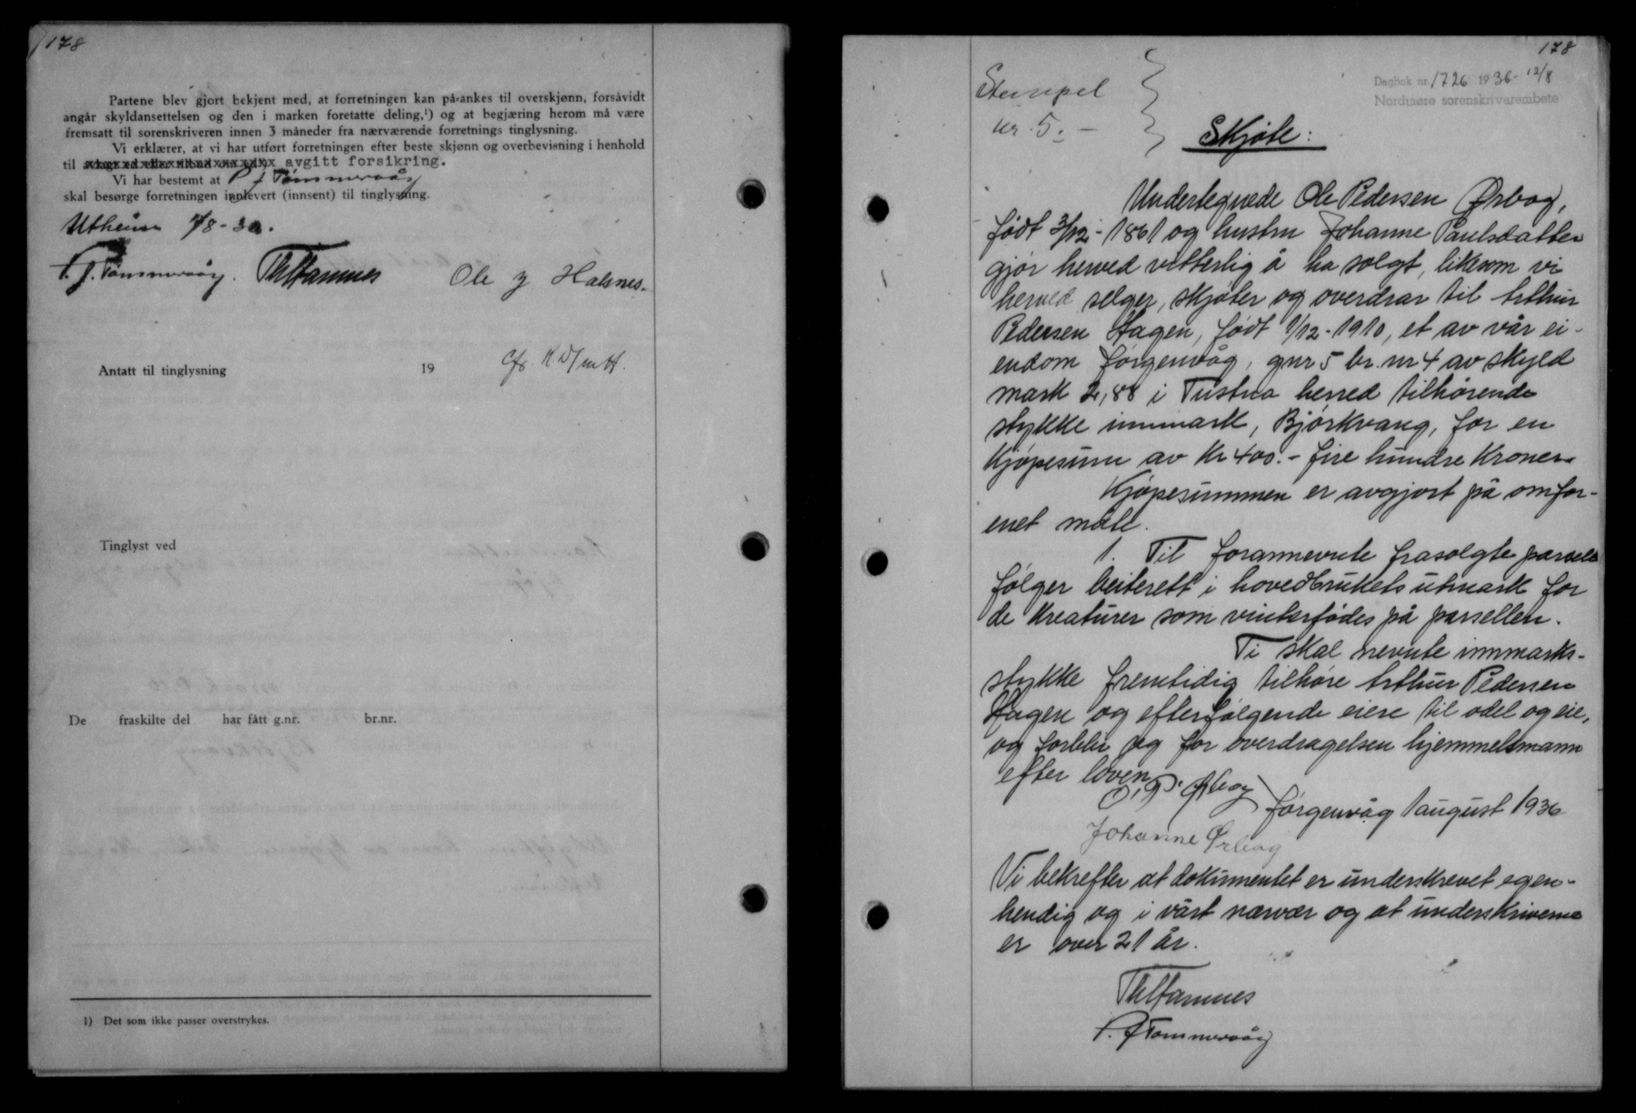 178
Partene blev gjort bekjent med, at forretningen kan på-ankes til overskjønn, forsåvidt
angår skyldansettelsen og den i marken foretatte deling,¹) og at begjæring herom må være
fremsatt til sorenskriveren innen 3 måneder fra nærværende forretnings tinglysning.
Vi erklærer, at vi har utført forretningen efter beste skjønn og overbevisning i henhold
til avgitt forsikring.
Vi har bestemt at P J Tømmervåg
skal besørge forretningen innlevert (innsent) til tinglysning.
Utheim 1/8-36.
P. J. Tømmervåg. Th Hamnes Ole J Halsnes.
Antatt til tinglysning 19
Tinglyst ved
De fraskilte del har fått g.nr. br.nr.
1) Det som ikke passer overstrykes.
178
Dagbok nr. 1726 1936 - 12/8
Nordmøre sorenskriverembete
Stempel
kr. 5.-
Skjøte:
Undertegnede Ole Pedersen Ørbog,
født 3/12-1861 og hustru Johanne Paulsdatter
gjør herved vitterlig å ha solgt, likesom vi
herved selger, skjøter og overdrar til Arthur
Pedersen Hagen, født 1/12-1910, et av vår ei-
endom Jørgenvåg, gnr 5 br. nr 4 av skyld
mark 2,88 i Tustna herred tilhørende
stykke innmark, Bjørkvang, for en
kjøpesum av Kr 400.- fire hundre kroner.
Kjøpesummen er avgjort på omfor-
enet måte.
1. Til forannevnte frasolgte parsell
følger beiterett i hovedbrukets utmark for
de kreaturer som vinterfødes på parsellen.
Ti skal nevnte innmarks-
stykke fremtidig tilhøre Arthur Pedersen
Hagen og efterfølgende eiere til odel og eie,
og forblir jeg for overdragelsen hjemmelsmann
efter loven.
O. P. Ørbog Jørgenvåg 1 august 1936
Johanne Ørbog
Vi bekrefter at dokumentet er underskrevet egen-
hendig og i vårt nærvær og at underskriverne
er over 21 år.
Th Hamnes
P. J Tømmervåg